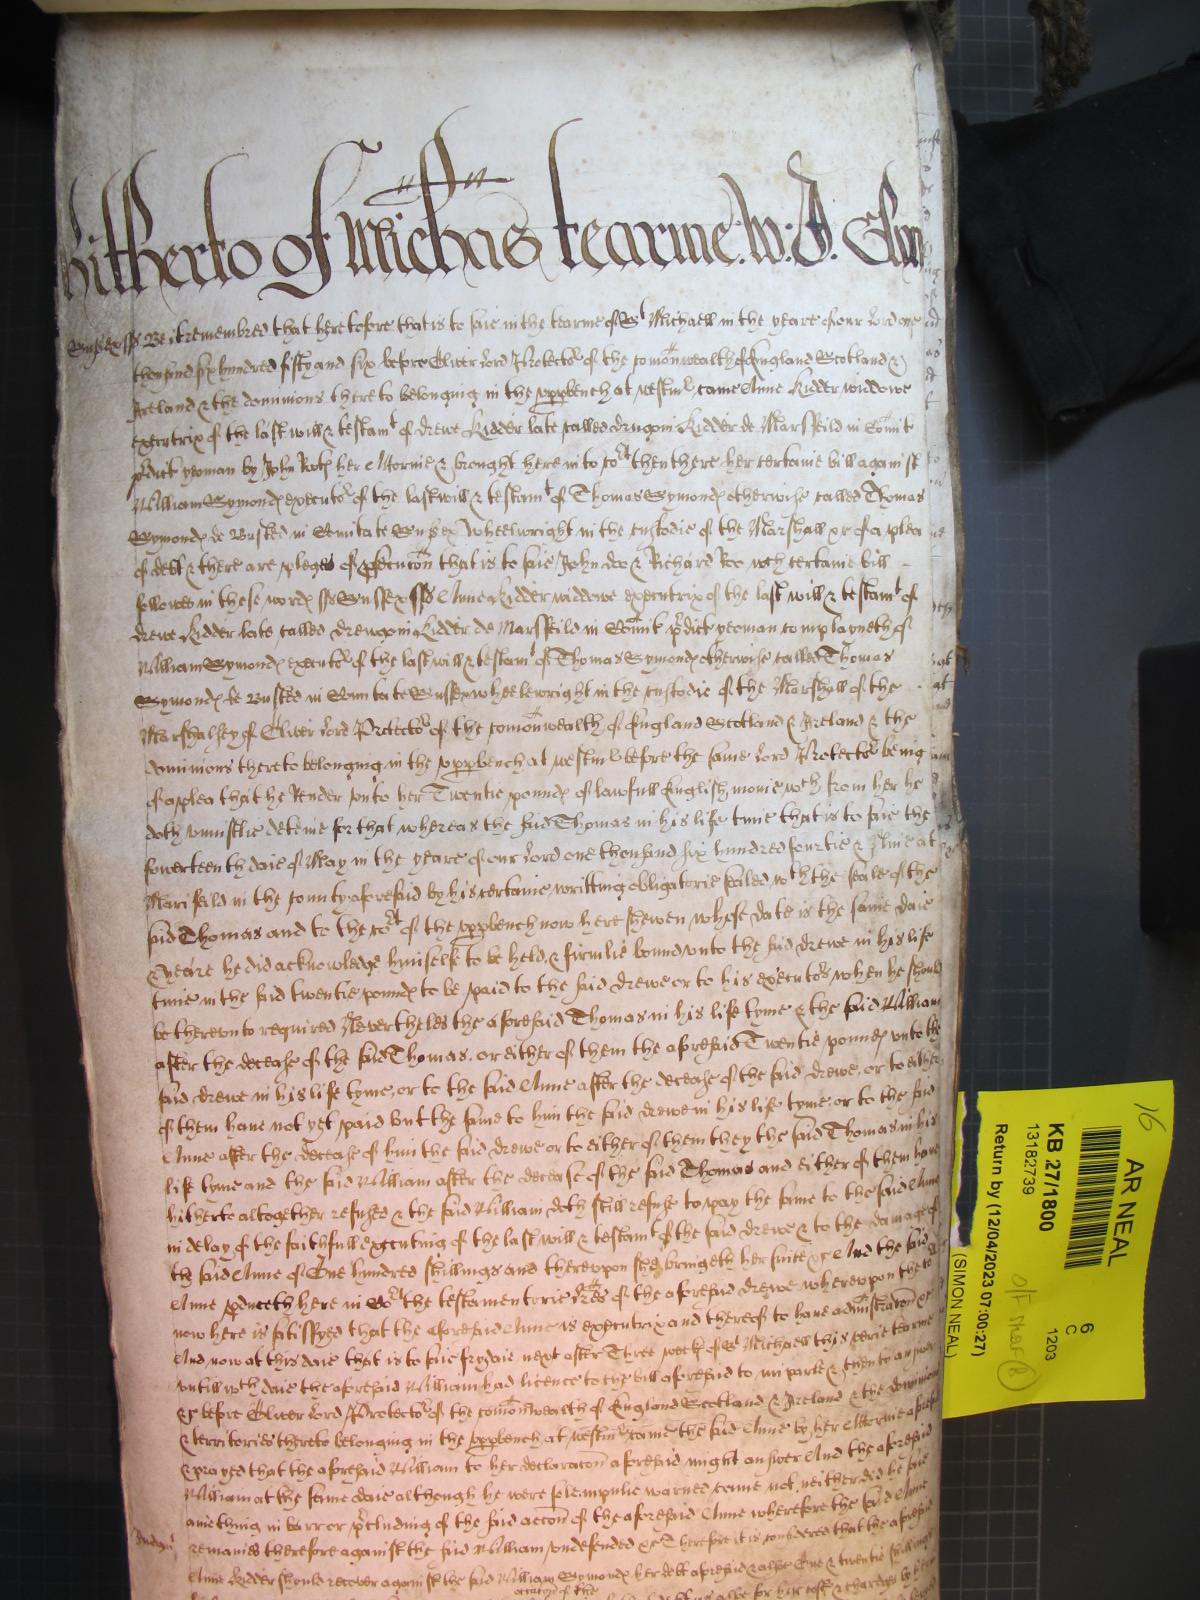 hitherto of Michas tearme. W: J.
Sussex ss Be it remembred that heretofore that is to saie in the tearme of St Michaell in the yeare of our Lord one
thousand six hundred fifty and six before Oliver Lord Protector of the comonwealth of England Scotland &
Ireland & the dominions thereto belonging in the upp bench at westm came Anne Kidder widdowe
executrix of the last will & testamt of drewe Kidder late called drugoin Kidder de Marsfeild in Comit
pdict yeoman by John her Attornie & brought here into cort then there her certaine bill against
William Symonds executor of the last will & testamt of Thomas Symonds otherwise called Thomas
Symonds de Busted in Comitate Sussex Wheelwright in the custodie of the Marshall &c of a plea
of debt & there are pleges of psecucon that is to saie John doe & Richard Roe wch certaine bill
followes in these words ss Sussex ss Anne Kidder widdowe executrix of the last will & testamt of
drewe Kidder late called drewgoin Kidder de Marsfeild in Comit pdict yeoman complayneth of
William Symonds executor of the last will & testamt of Thomas Symonds otherwise called Thomas
Symonds de Busted in Comitate Sussex wheelewright in the custodie of the Marshall of the
Marshalsey of Oliver Lord Protector of the comonwealth of England Scotland & Ireland & the
dominions thereto belonging in the upp bench at westm before the same Lord Protector being
of a plea that he Render unto her Twentie pounds of lawfull English monie wch from her he
doth uniustlie deteine for that whereas the said Thomas in his life time that is to saie the
fowerteenth daie of May in the yeare of our Lord one thousand six hundred fourtie & Nine at
Marsfeild in the county aforesaid by his certaine writting obligatorie sealed wth the seale of the
said Thomas and to the cort of the upp bench now here shewen whose date is the same daie
& yeare he did acknowledge himselfe to be held & firmlie bound unto the said drewe in his life
time in the said twentie pounds to be paid to the said drewe or to his executors when he should
be thereunto required Neverthelds the aforesaid Thomas in his life tyme & the said William
after the decease of the said Thomas. or either of them the aforesaid Twentie pounds unto the
said drewe in his life tyme, or to the said Anne after the decease of the said drewe, or to either
of them have not yet paid But the same to him the said drewe in his life tyme, or to the said
Anne after the decease of him the said drewe or to either of them they the said Thomas in his
life tyme and the said William after the decease of the said Thomas and either of them have
hitherto altogether refused & the said William doth still refuse to pay the same to the said Anne
in delay of the faithfull executing of the last will & testamt of the said drewe & to the damage of
the said Anne of One hundred shillings and thereupon shee bringeth her suite &c And the said
Anne pduceth here in Cort the testamentorie lres of the aforesaid drewe whereupon the
now here is satisfyed that the aforesaid Anne is executrix and thereof to have administracon &c
And now at this daie that is to saie frydaie next after Three weeks of St Michaell this verie tearme
untill wch daie the aforesaid William had licence to the bill aforesaid to imparle & then to answer
&c before Oliver Lord Protector of the comonwealth of England Scotland & Ireland & the dominions
& territories thereto belonging in the upp bench at westm came the said Anne by her Attornie aforesaid
& prayed that the aforesaid William to her declaracon aforesaid might answer And the aforesaid
William at the same daie although he were solempnlie warned came not neither did he saie
aniething in barr or pcluding of the said accon of the aforesaid Anne wherefore the said Anne
remaines therefore against the said William undefended &c Therefore it is considered that the aforesaid
Anne Kidder should recover against the said William Symonds her debt aforesaid & alsoe One & twentie shillings
AR NEAL
KB 27/1800
13182739
Return by (12/04/2023 07:00:27)
(SIMON NEAL)
6
C
1203
16